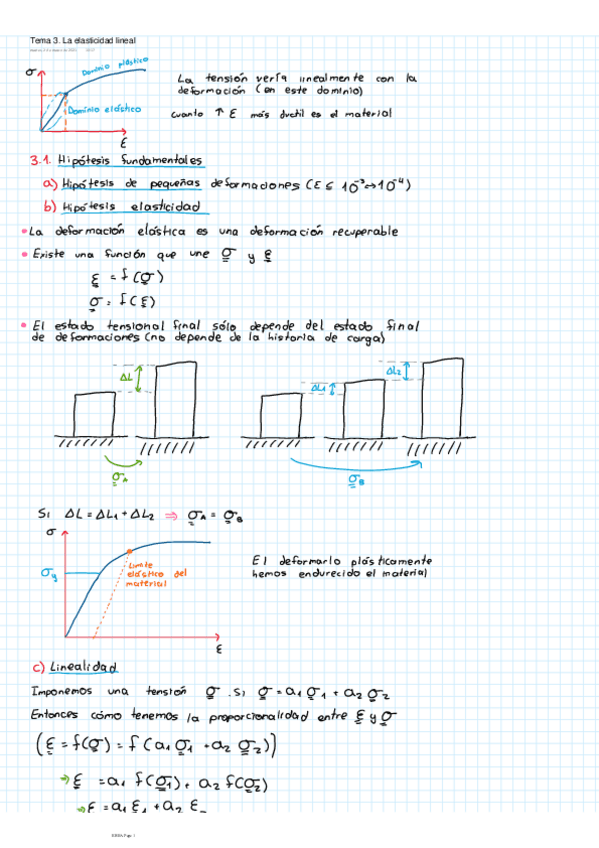 Tema 3. La elasticidad lineal
Dominio plástico
σ
Dominio elástico
ε
La tensión varía linealmente con la
deformación (en este dominio)
cuanto ↑ ε más ductil es el material
3.1. Hipótesis fundamentales
a) Hipótesis de pequeñas deformaciones (ε ≤ 10⁻³↔10⁻⁴)
b) Hipótesis elasticidad
• La deformación elástica es una deformación recuperable
• Existe una función que une σ y ε
ε = f(σ)
σ = f(ε)
• El estado tensional final sólo depende del estado final
de deformaciones (no depende de la historia de carga)
ΔL
ΔL1
ΔL2
σA
σB
Si ΔL = ΔL1 + ΔL2 ⇒ σA = σB
σ
σy
Limite
elástico del
material
ε
El deformarlo plásticamente
hemos endurecido el material
c) Linealidad
Imponemos una tensión σ. Si σ = a1 σ1 + a2 σ2
Entonces cómo tenemos la proporcionalidad entre ε y σ
(ε = f(σ) = f(a1 σ1 + a2 σ2))
⇒ ε = a1 f(σ1) + a2 f(σ2)
⇒ ε = a1 ε1 + a2 ε